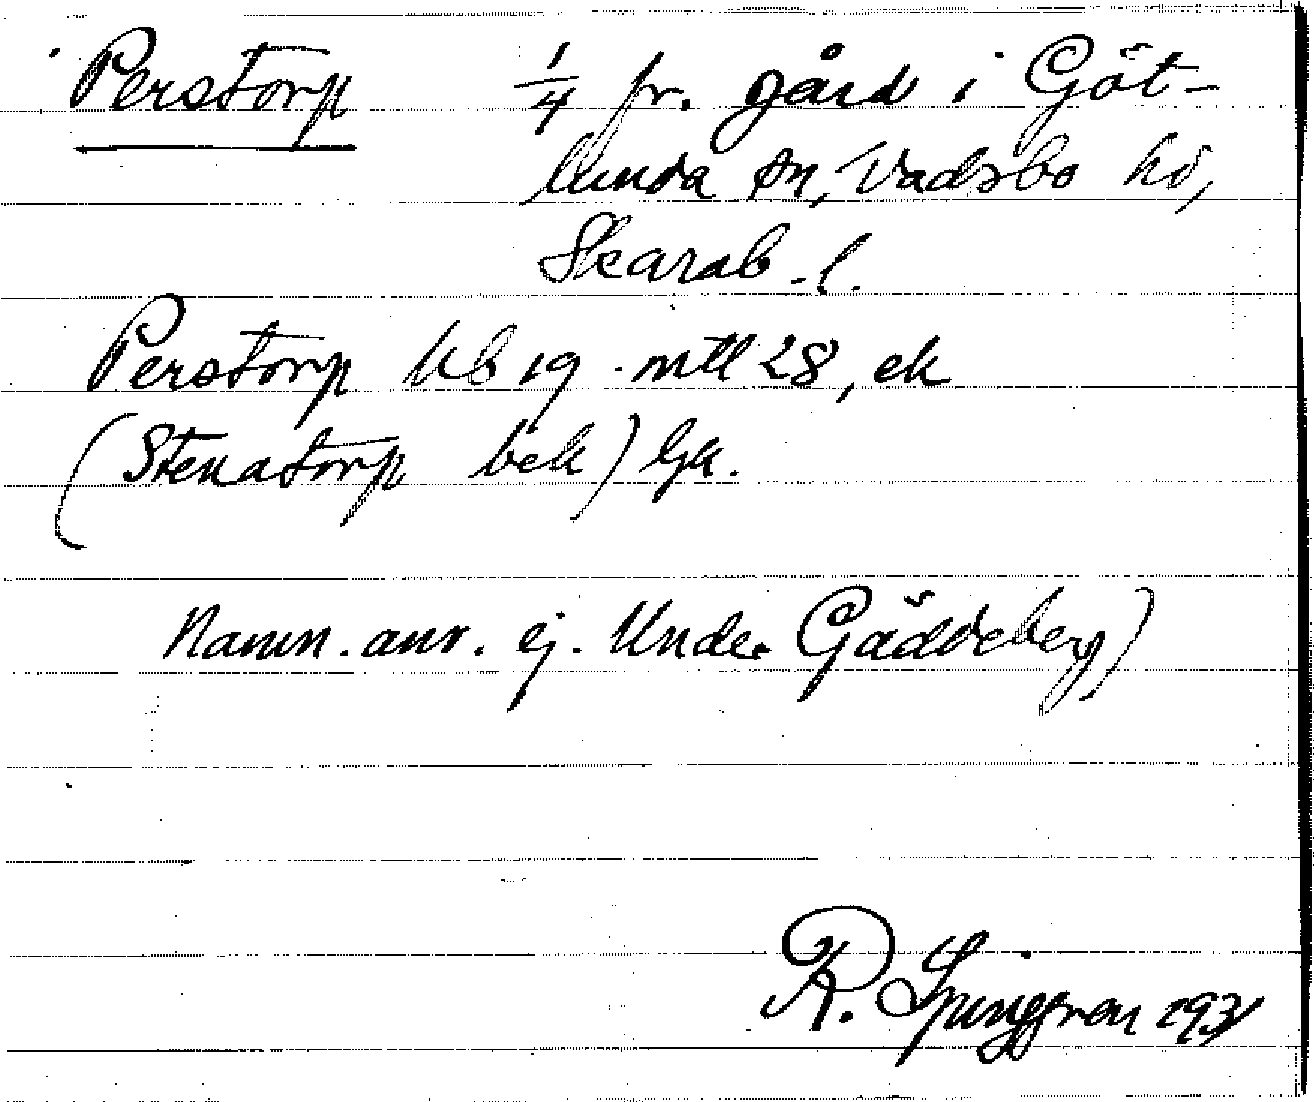 Perstorp 1/4 fr. gård i Göt-
lunda sn, Vadsbo hd,
Skarab. l.
Perstorp kb 19 mtl 28, ek
(Stenatorp bek) Gk.
Namn. anv. ej. Under Gäddeberg)
R. Ljunggren 1931